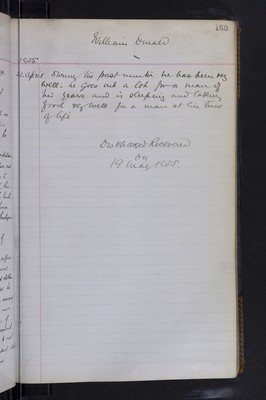 160.
William Donald
1885
21. April During the past month he has been very
well. he goes out a lot for a man of
his years and is sleeping and taking
food very well for a man at his time
of life
Discharged Recovered
on
19 May 1885.